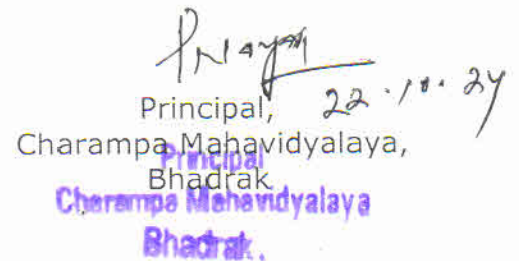 22.10.24
Principal,
Charampa Mahavidyalaya,
Bhadrak
Principal
Charampa Mahavidyalaya
Bhadrak.